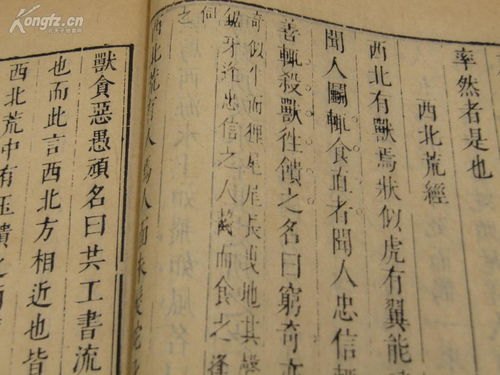 率然者是也
西北荒經
西北有獸焉狀似虎有翼能
聞人鬭輒食直者聞人忠信
善輒殺獸徃饋之名曰窮奇亦
奇似牛而狸尾尾長曳地其聲
鋸牙逢忠信之人齧而食之逢
西北荒有人焉人面朱髮蛇
獸貪惡愚頑名曰共工書流
也而此言西北方相近也皆
西北荒中有玉饋之
Kongfz.cn